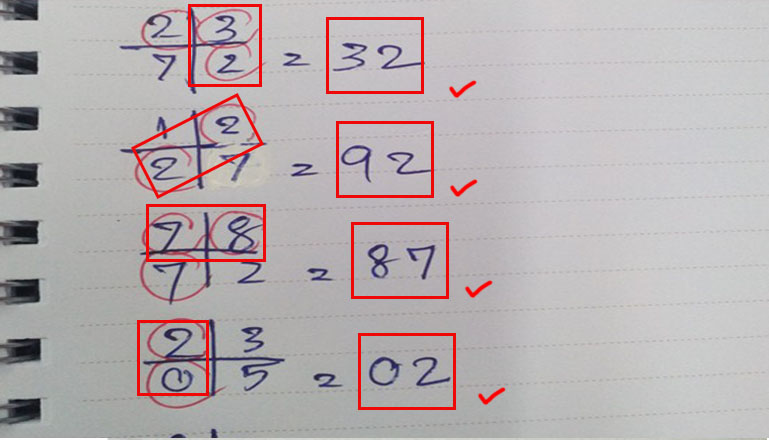 2 3
7 2 = 32
1 2
2 7 = 92
7 8
7 2 = 87
2 3
0 5 = 02